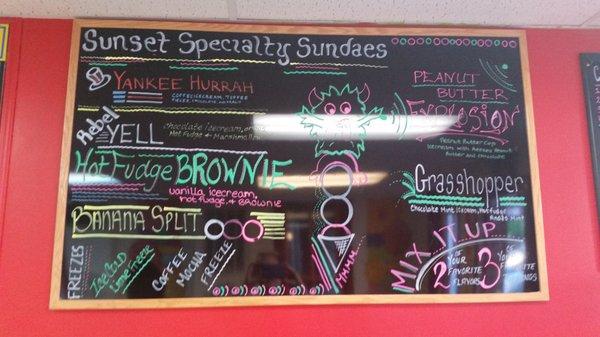 Sunset Specialty Sundaes
YANKEE HURRAH
COFFEE ICECREAM, TOFFEE
Rebel
YELL
chocolate icecream,
Hot Fudge & Marshmallow
Hot Fudge BROWNIE
vanilla icecream,
hot fudge, & Brownie
BANANA SPLIT
FREEZES
Ice Cold
Lime Freeze
COFFEE
MOCHA
FREEZE
MMMM
PEANUT
BUTTER
Explosion
Peanut Butter Cup
Icecream with Reeses Peanut
Butter and chocolate
Grasshopper
Chocolate Mint Icecream, Hot Fudge
Andes Mint
MIX IT UP
2 OF YOUR FAVORITE FLAVORS
3 OF YOUR FAVORITE TOPPINGS